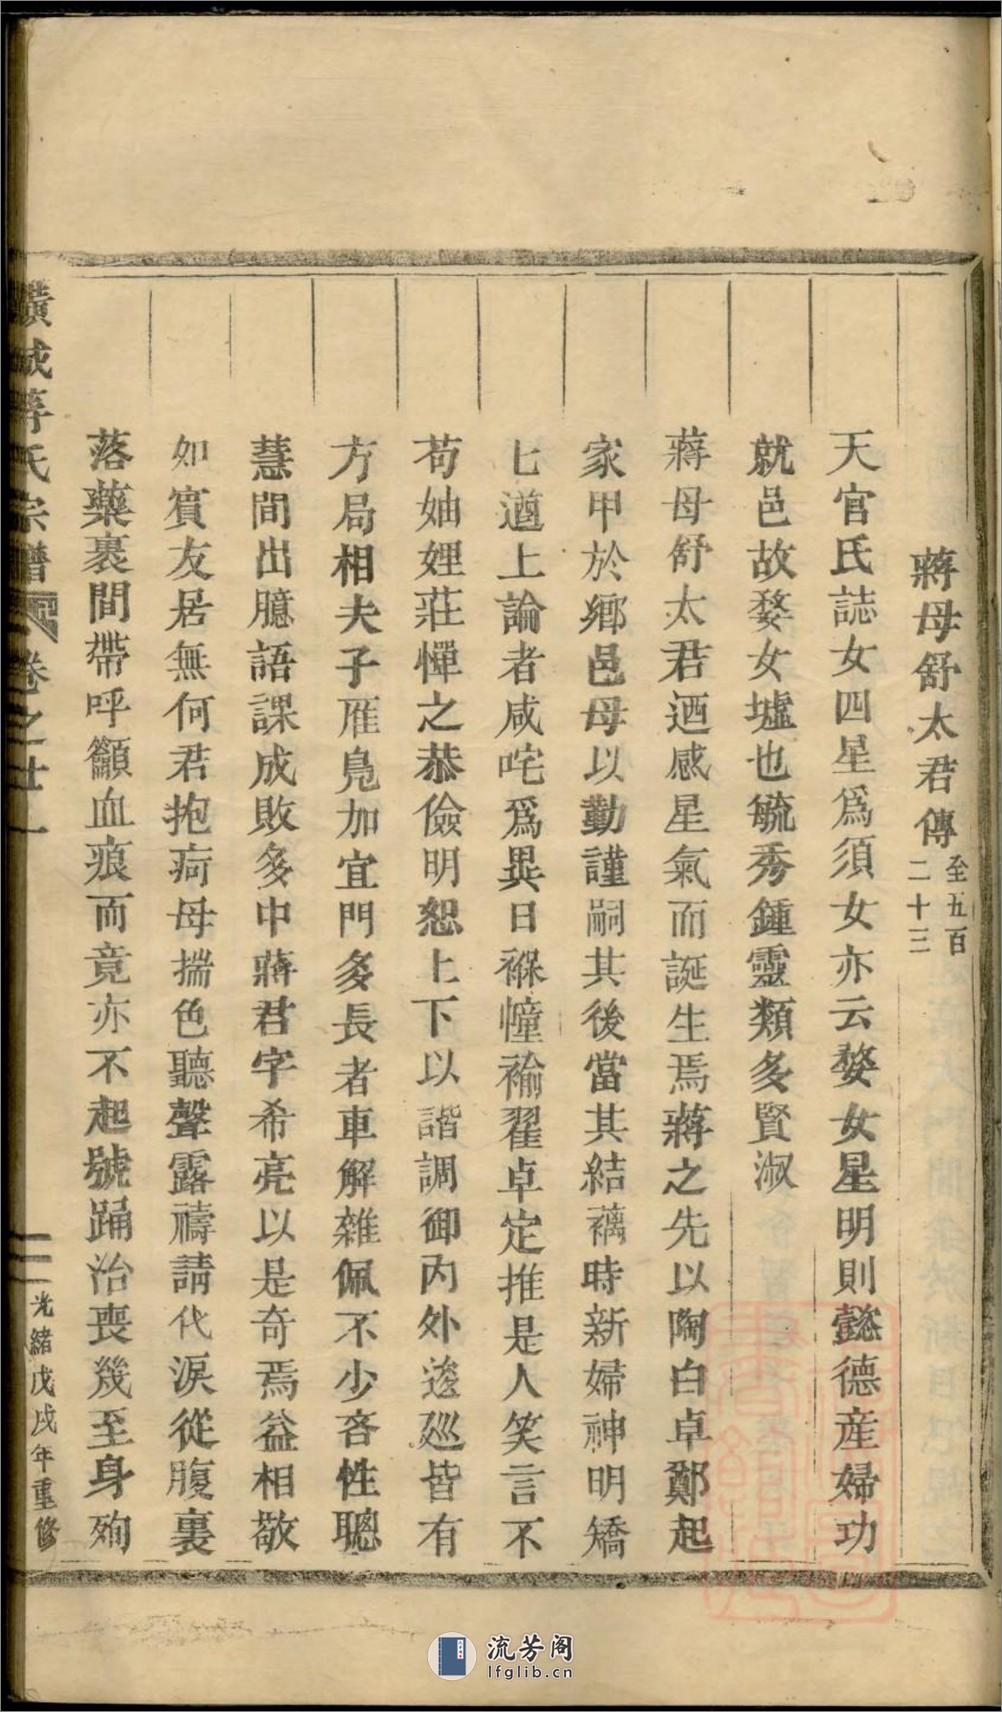 蔣母舒太君傳至五百二十三
天官氏誌女四星爲須女亦云婺女星明則懿德産婦功
就邑故婺女墟也毓秀鍾靈類多賢淑
蔣母舒太君迺感星氣而誕生焉蔣之先以陶白卓鄭起
家甲於鄉邑母以勤謹嗣其後當其結褵時新婦神明矯
七遒上論者咸咤爲異日褓幢褕翟卓定推是人笑言不
苟妯娌莊憚之恭儉明恕上下以諧調御內外逡廵皆有
方局相夫子雁鳬加宜門多長者車解雜佩不少吝性聰
慧間出臆語課成敗多中蔣君字希亮以是奇焉益相敬
如賓友居無何君抱疴母揣色聽聲露禱請代淚從腹裏
落藥裹間帶呼籲血痕而竟亦不起號踊治喪幾至身殉
蔣氏宗譜 卷之廿一 二 光緒戊戌年重修
流芳阁
lfglib.cn